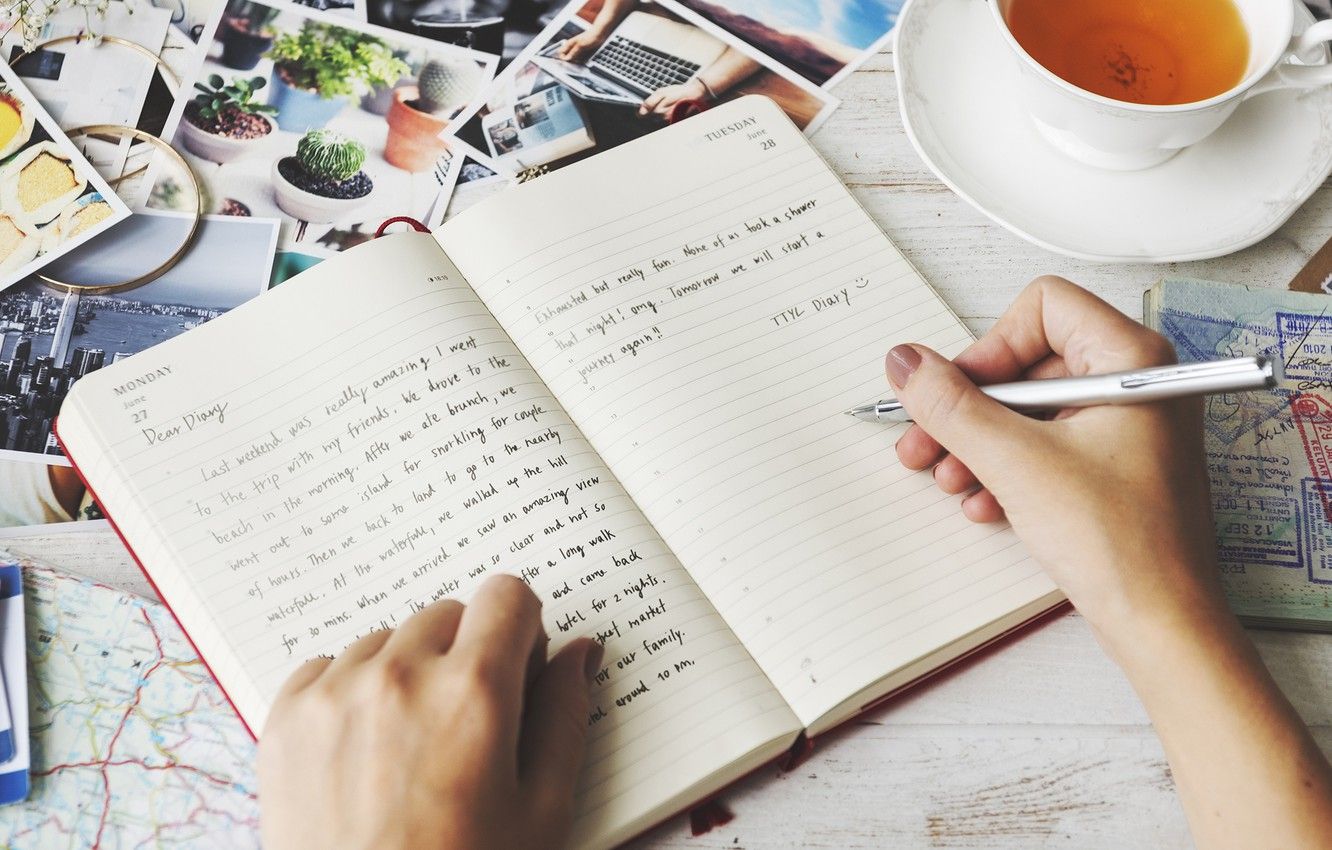 MONDAY
June
27
Dear Diary
Last weekend was really amazing I went
to the trip with my friends. We drove to the
beach in the morning. After we ate brunch, we
went out to some island for snorkling for couple
of hours. Then we back to land to go to the nearby
waterfall. At the waterfall, we walked up the hill
for 30 mins. When we arrived we saw an amazing view
fall! The water was so clear and not so
after a long walk
and came back
hotel for 2 nights.
street market
for our family.
around 10 pm.
TUESDAY
June
28
Exhausted but really fun. None of us took a shower
that night!, omg. Tomorrow we will start a
journey again!!
TTYL Diary
2010
29 JAN
KELUAR
12 SEP
ADMITTED
UNTIL
11 OCT